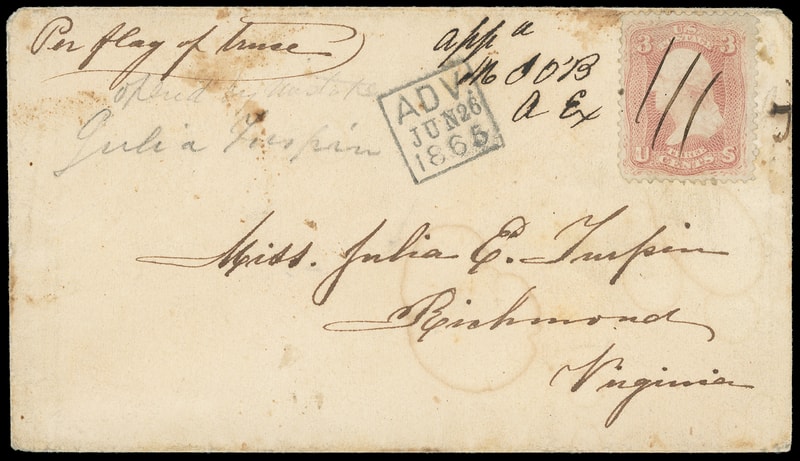 Per flag of truce
opend by mistake
Julia Turpin
app a
M J O'B
A Ex
ADV
JUN 26
1865
3 U.S. 3
U CENTS S
Miss. Julia E. Turpin
Richmond
Virginia